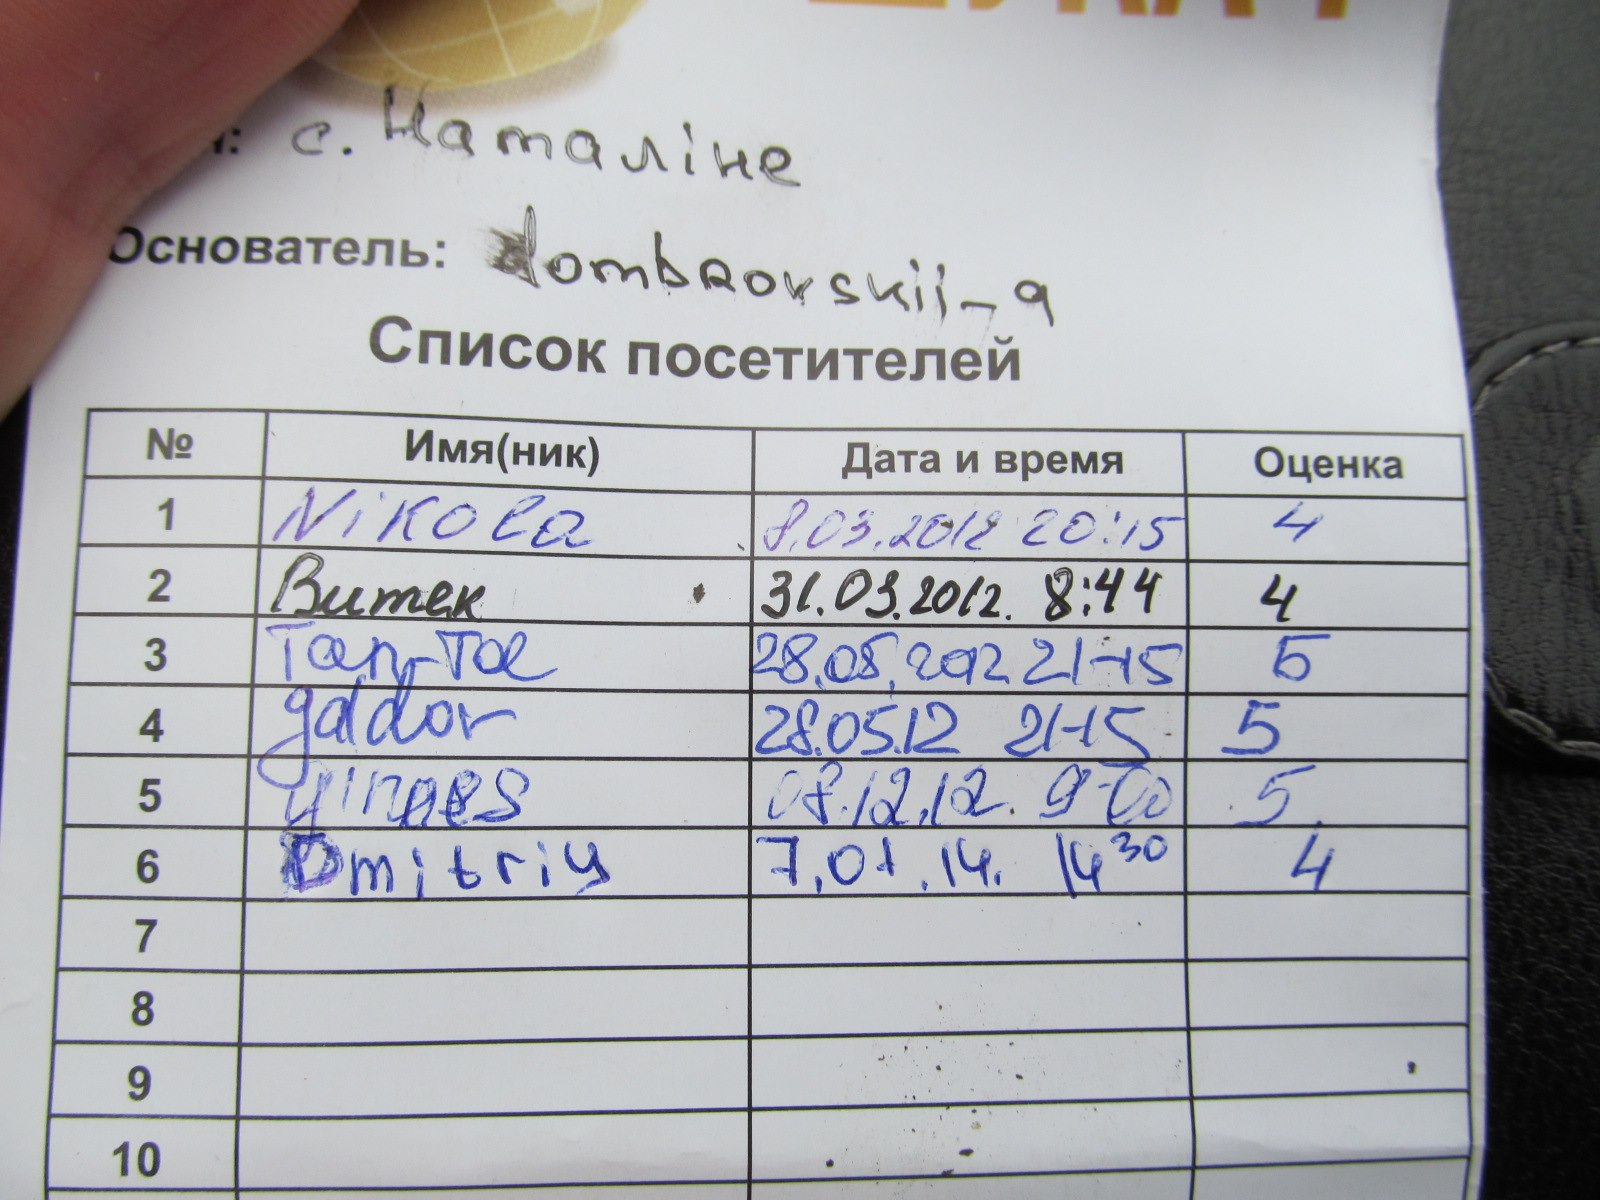 с. Наталіне
Основатель: dombrovskii_9
Список посетителей
№ Имя(ник) Дата и время Оценка
1 Nikola 8.03.2012 20:15 4
2 Витек 31.03.2012. 8:44 4
3 Tan-Tae 28.05.2012 21-15 5
4 galdor 28.05.12 21-15 5
5 08.12.12. 9-00 5
6 Dmitriy 7.01.14. 14 30 4
7
8
9
10